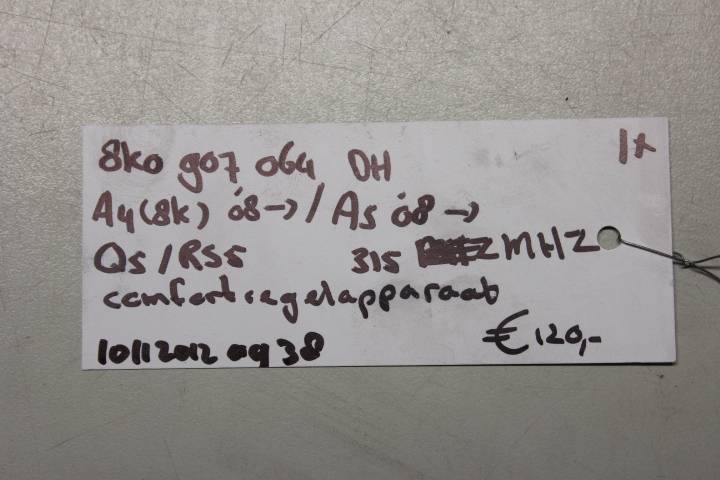 8k0 907 064 DH 1x
A4 (8k) 08 → / A5 08 →
Q5 / RS5 315 MHZ
comfortregelapparaat
€ 120,-